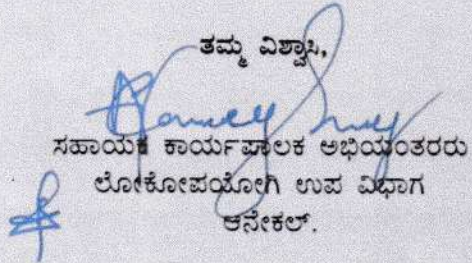 ತಮ್ಮ ವಿಶ್ವಾಸಿ,
ಸಹಾಯಕ ಕಾರ್ಯಪಾಲಕ ಅಭಿಯಂತರರು
ಲೋಕೋಪಯೋಗಿ ಉಪ ವಿಭಾಗ
ಆನೇಕಲ್.